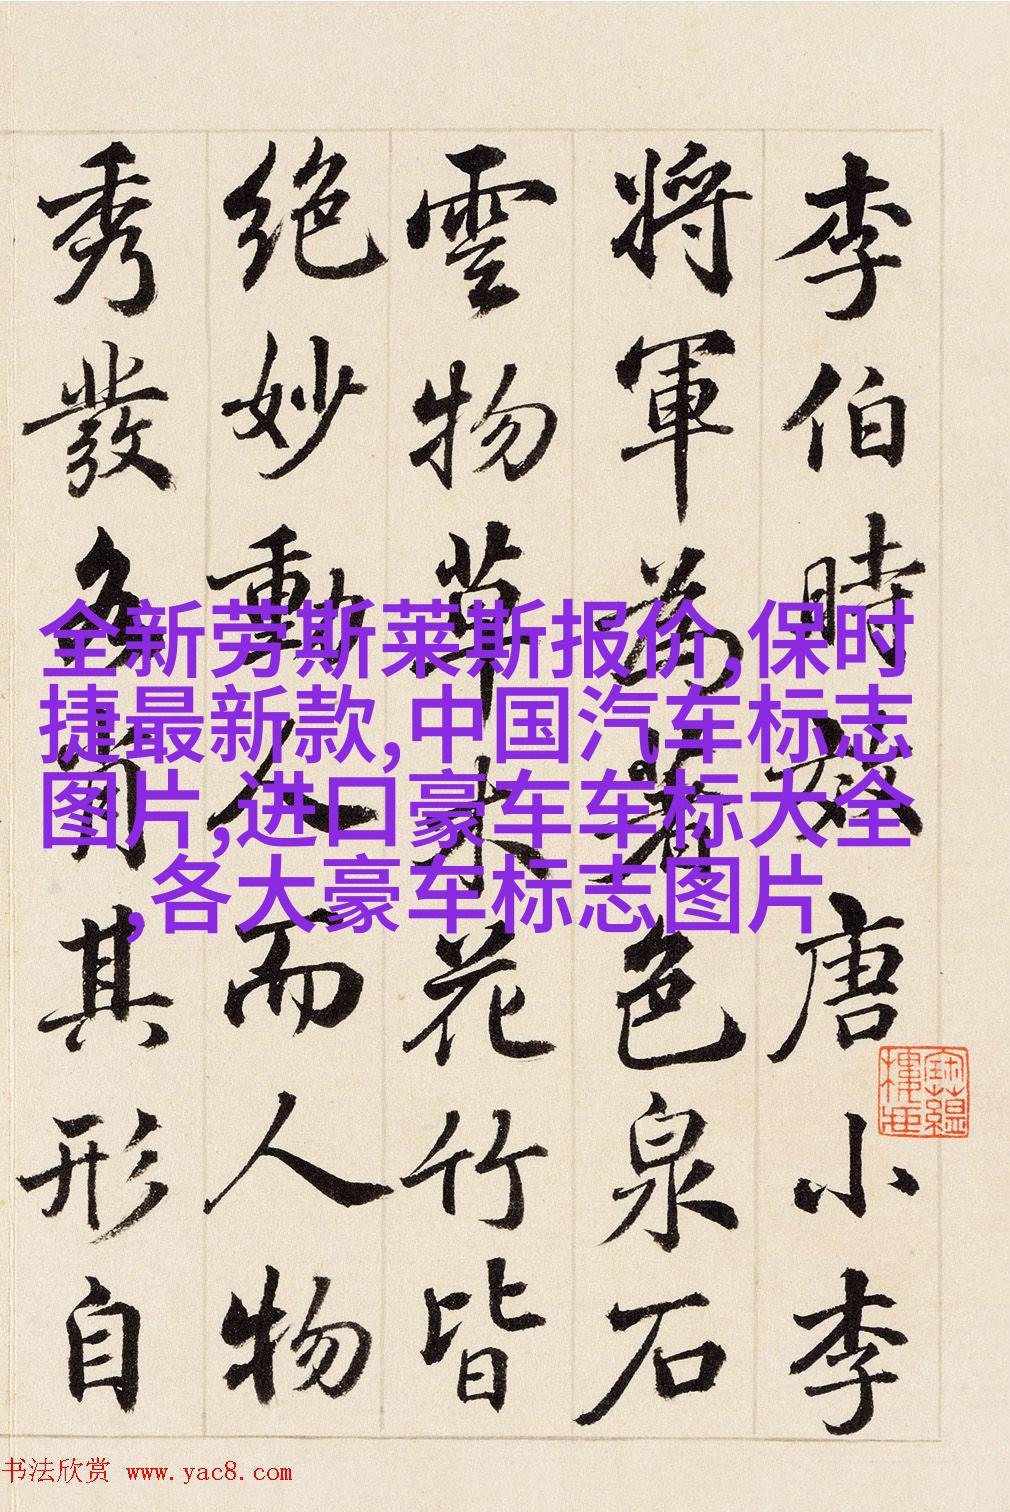 李伯時效唐小李
將軍為著色泉石
雲物草木花竹皆
絶妙動人而人物
秀發各肖其形自
全新劳斯莱斯报价,保时
捷最新款,中国汽车标志
图片,进口豪车车标大全
,各大豪车标志图片
书法欣赏 www.yac8.com